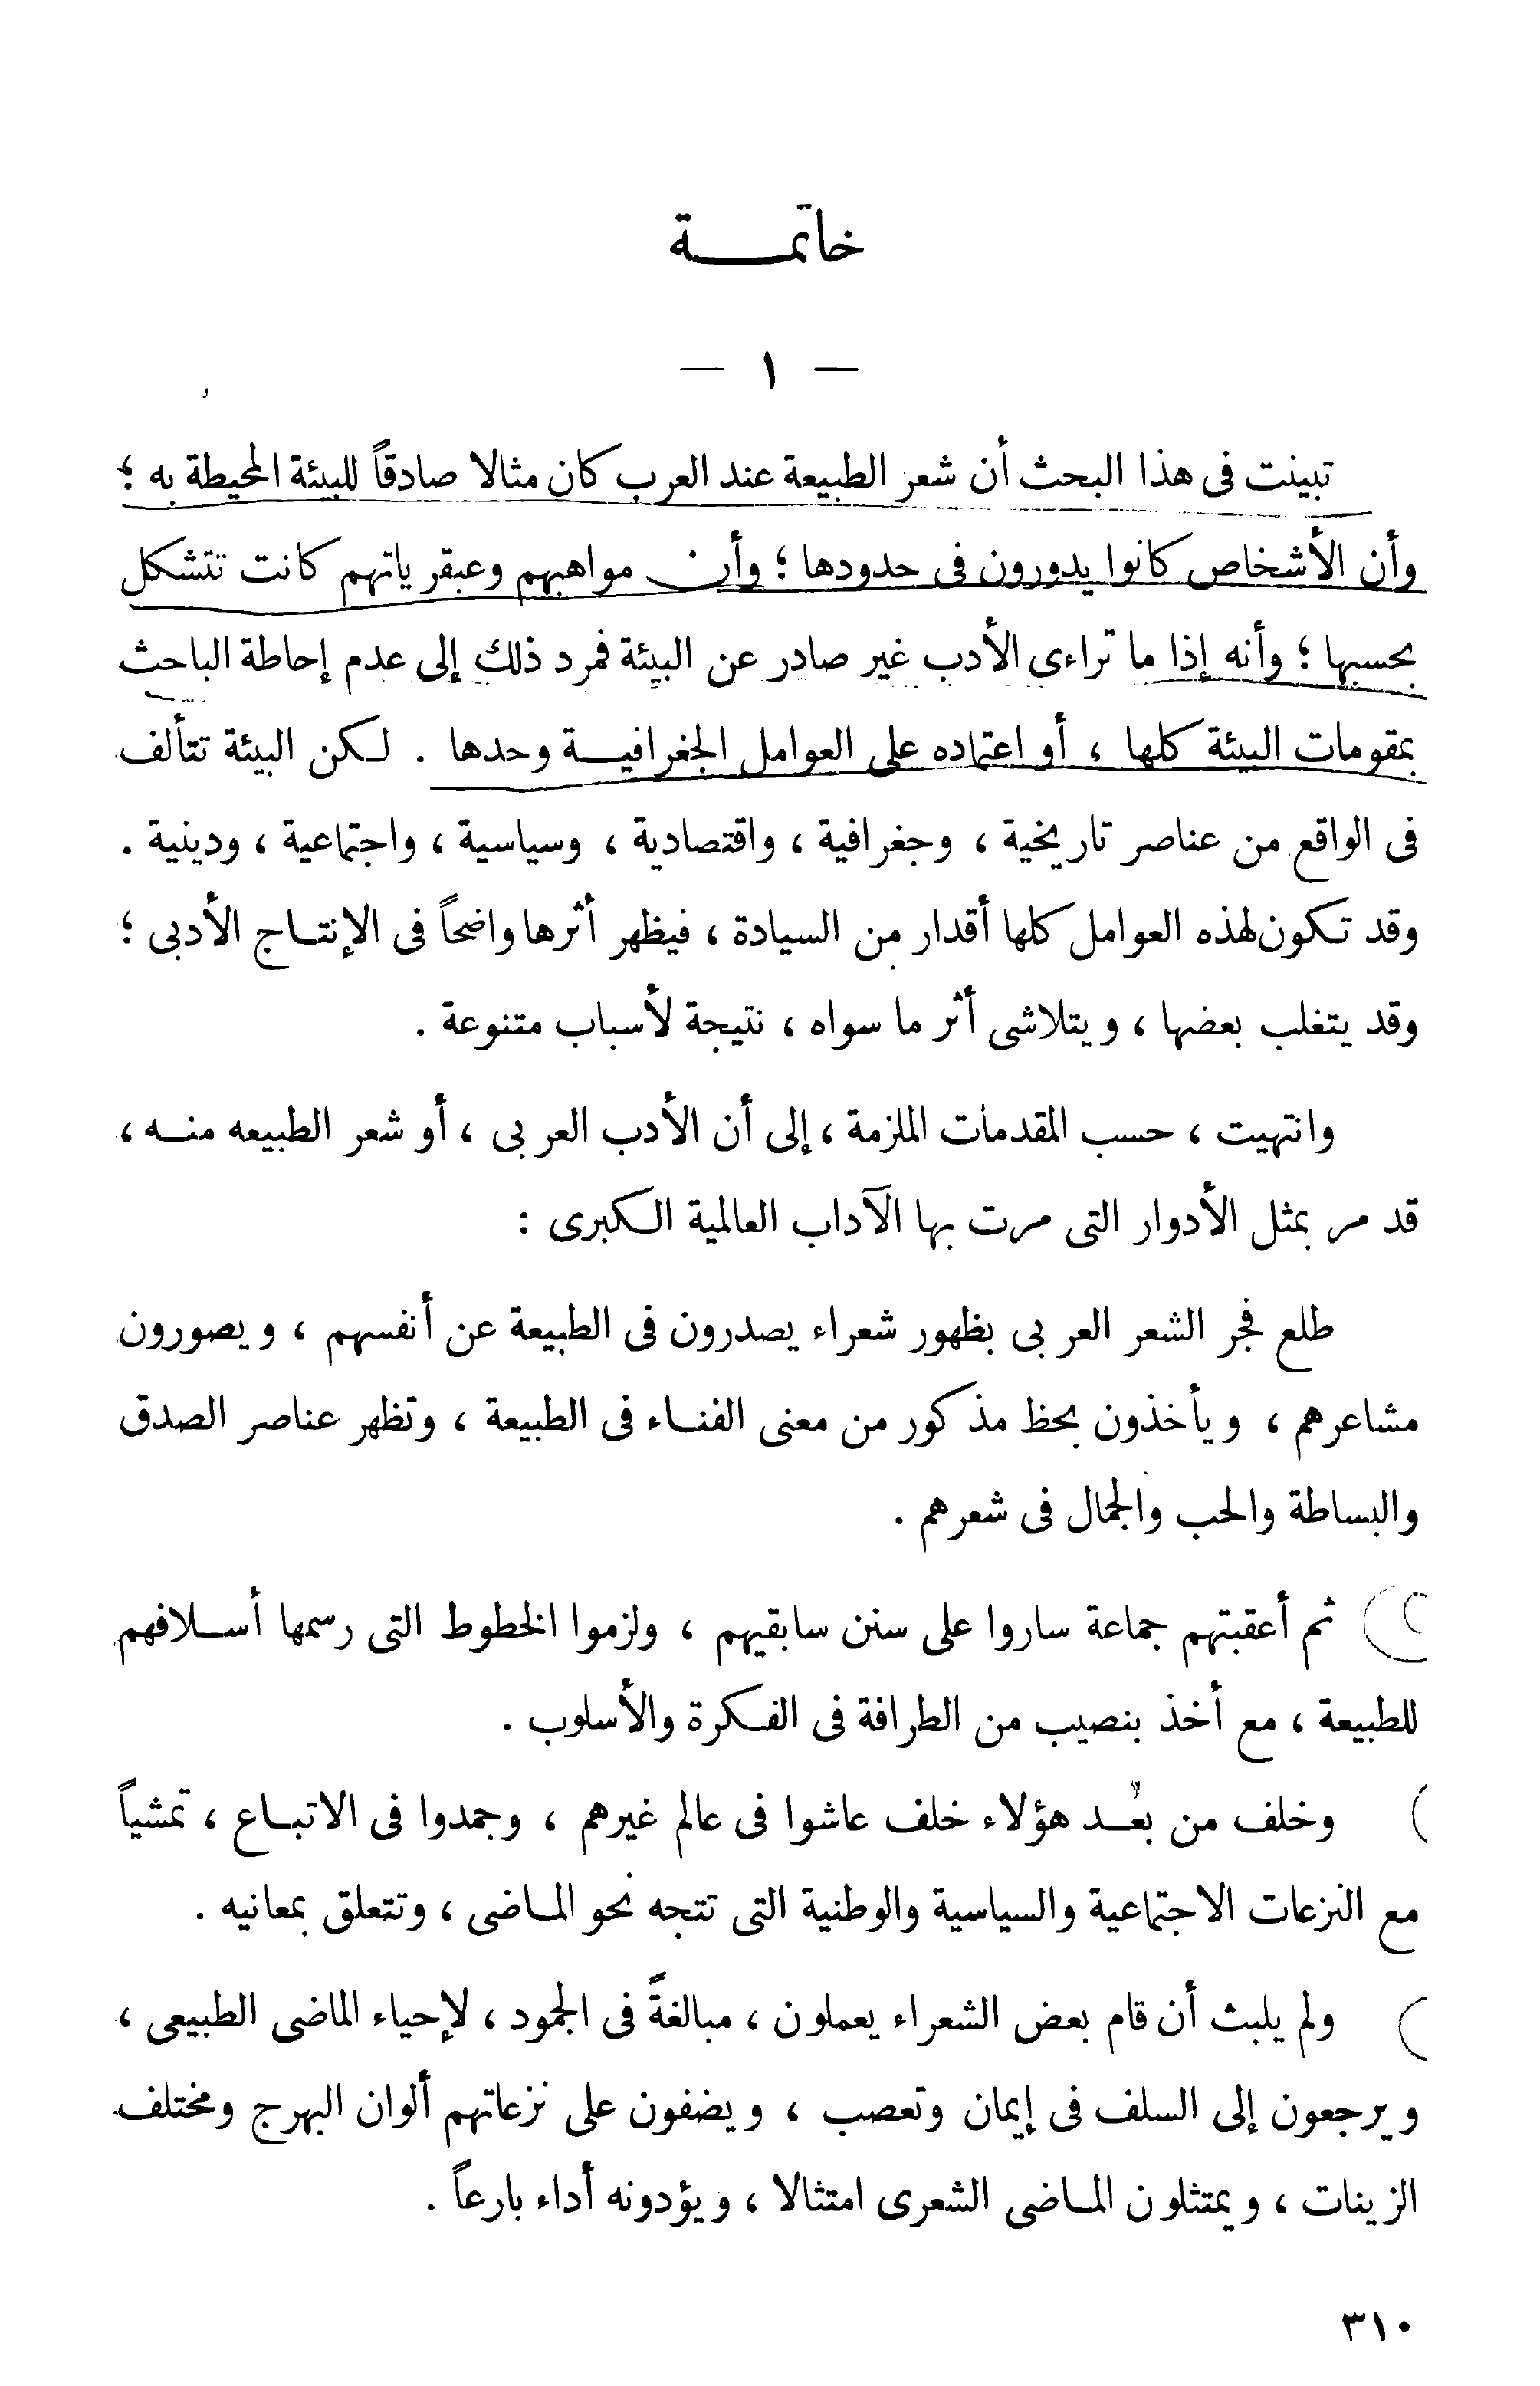 خاتمـــــة
— ١ —
تبينت فى هذا البحث أن شعر الطبيعة عند العرب كان مثالا صادقاً للبيئة المحيطة به ؛
وأن الأشخاص كانوا يدورون فى حدودها ؛ وأن مواهبهم وعبقرياتهم كانت تتشكل
بحسبها ؛ وأنه إذا ما تراءى الأدب غير صادر عن البيئة فمرد ذلك إلى عدم إحاطة الباحث
بمقومات البيئة كلها ، أو اعتماده على العوامل الجغرافيـــة وحدها . لكن البيئة تتألف
فى الواقع من عناصر تاريخية ، وجغرافية ، واقتصادية ، وسياسية ، واجتماعية ، ودينية .
وقد تكون لهذه العوامل كلها أقدار من السيادة ، فيظهر أثرها واضحاً فى الإنتــاج الأدبى ؛
وقد يتغلب بعضها ، ويتلاشى أثر ما سواه ، نتيجة لأسباب متنوعة .
وانتهيت ، حسب المقدمات الملزمة ، إلى أن الأدب العربى ، أو شعر الطبيعه منــه ،
قد مر بمثل الأدوار التى مرت بها الآداب العالمية الكبرى :
طلع فجر الشعر العربى بظهور شعراء يصدرون فى الطبيعة عن أنفسهم ، ويصورون
مشاعرهم ، ويأخذون بحظ مذكور من معنى الفنــاء فى الطبيعة ، وتظهر عناصر الصدق
والبساطة والحب والجمال فى شعرهم .
ثم أعقبتهم جماعة ساروا على سنن سابقيهم ، ولزموا الخطوط التى رسمها أســلافهم
للطبيعة ، مع أخذ بنصيب من الطرافة فى الفكرة والأسلوب .
وخلف من بعُــد هؤلاء خلف عاشوا فى عالم غيرهم ، وجمدوا فى الاتبــاع ، تمشياً
مع النزعات الاجتماعية والسياسية والوطنية التى تتجه نحو المــاضى ، وتتعلق بمعانيه .
ولم يلبث أن قام بعض الشعراء يعملون ، مبالغةً فى الجمود ، لإحياء الماضى الطبيعى ،
ويرجعون إلى السلف فى إيمان وتعصب ، ويضفون على نزعاتهم ألوان البهرج ومختلف
الزينات ، ويمتثلون المــاضى الشعرى امتثالا ، ويؤدونه أداء بارعاً .
٣١٠